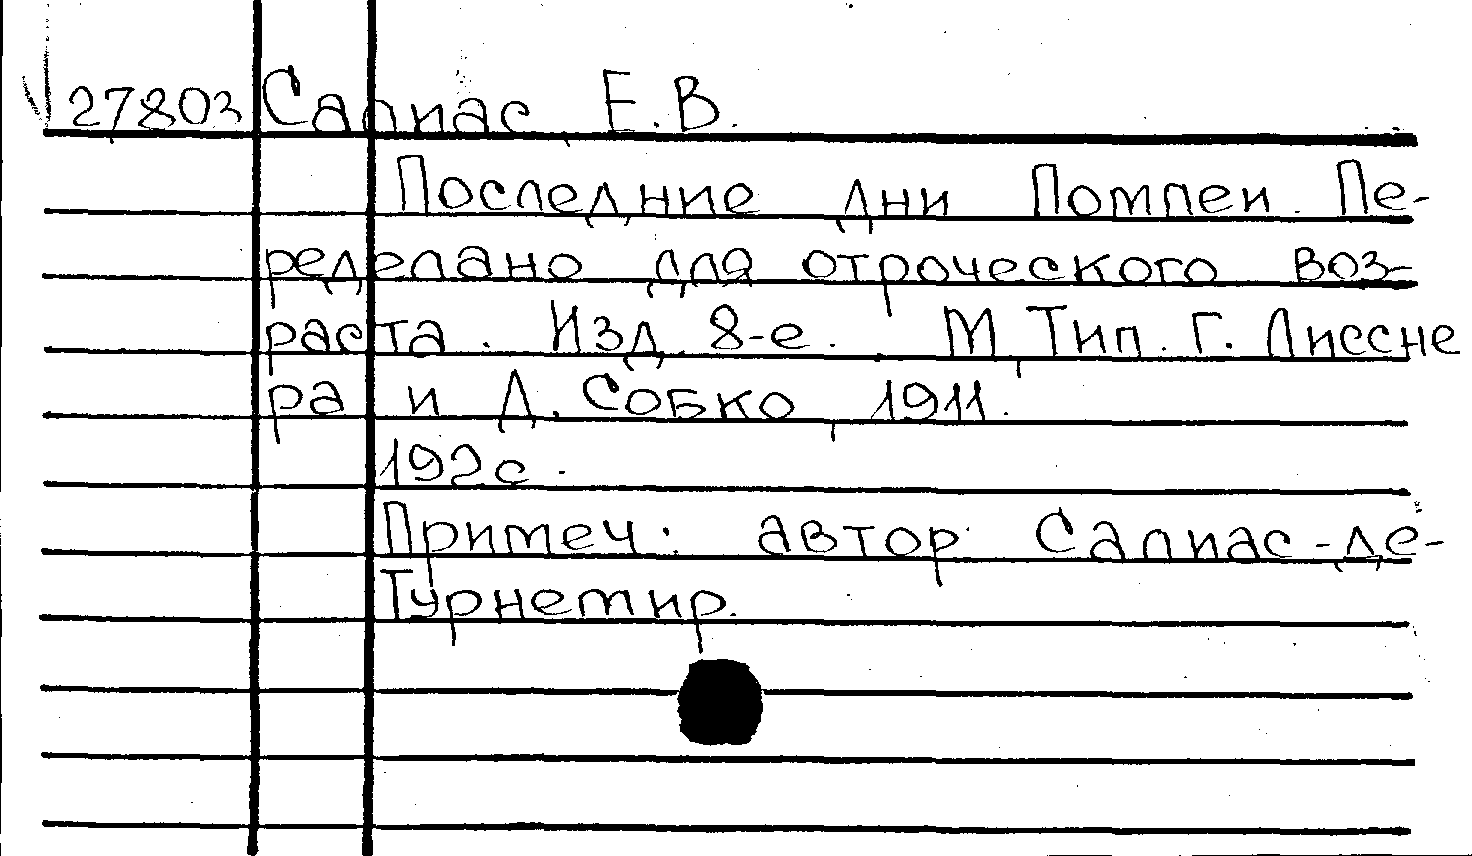 27803 Салиас, Е.В.
Последние дни Помпеи. Пе-
ределано для отроческого воз-
раста. Изд. 8-е. М, Тип. Г. Лиссне
ра и Д. Собко, 1911.
192с.
Примеч: автор: Салиас-де-
Турнемир.